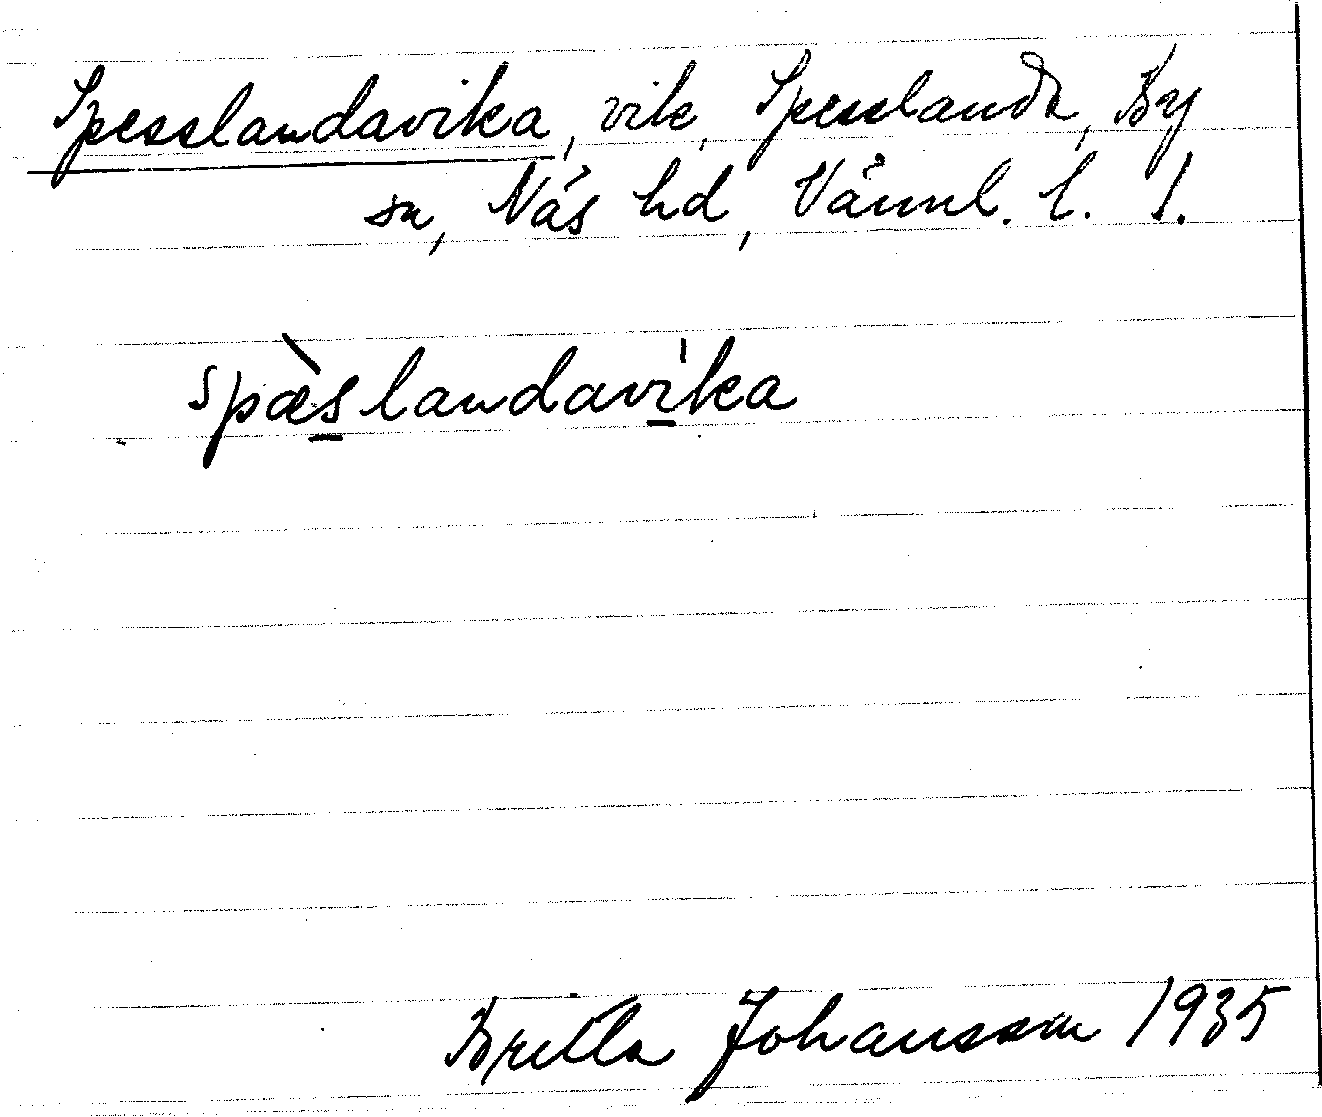 Spesslandavika, vik, Spesslanda, By
sn, Näs hd, Värml. l. 1.
spæ̀slandavi̍ka
Britta Johansson 1935